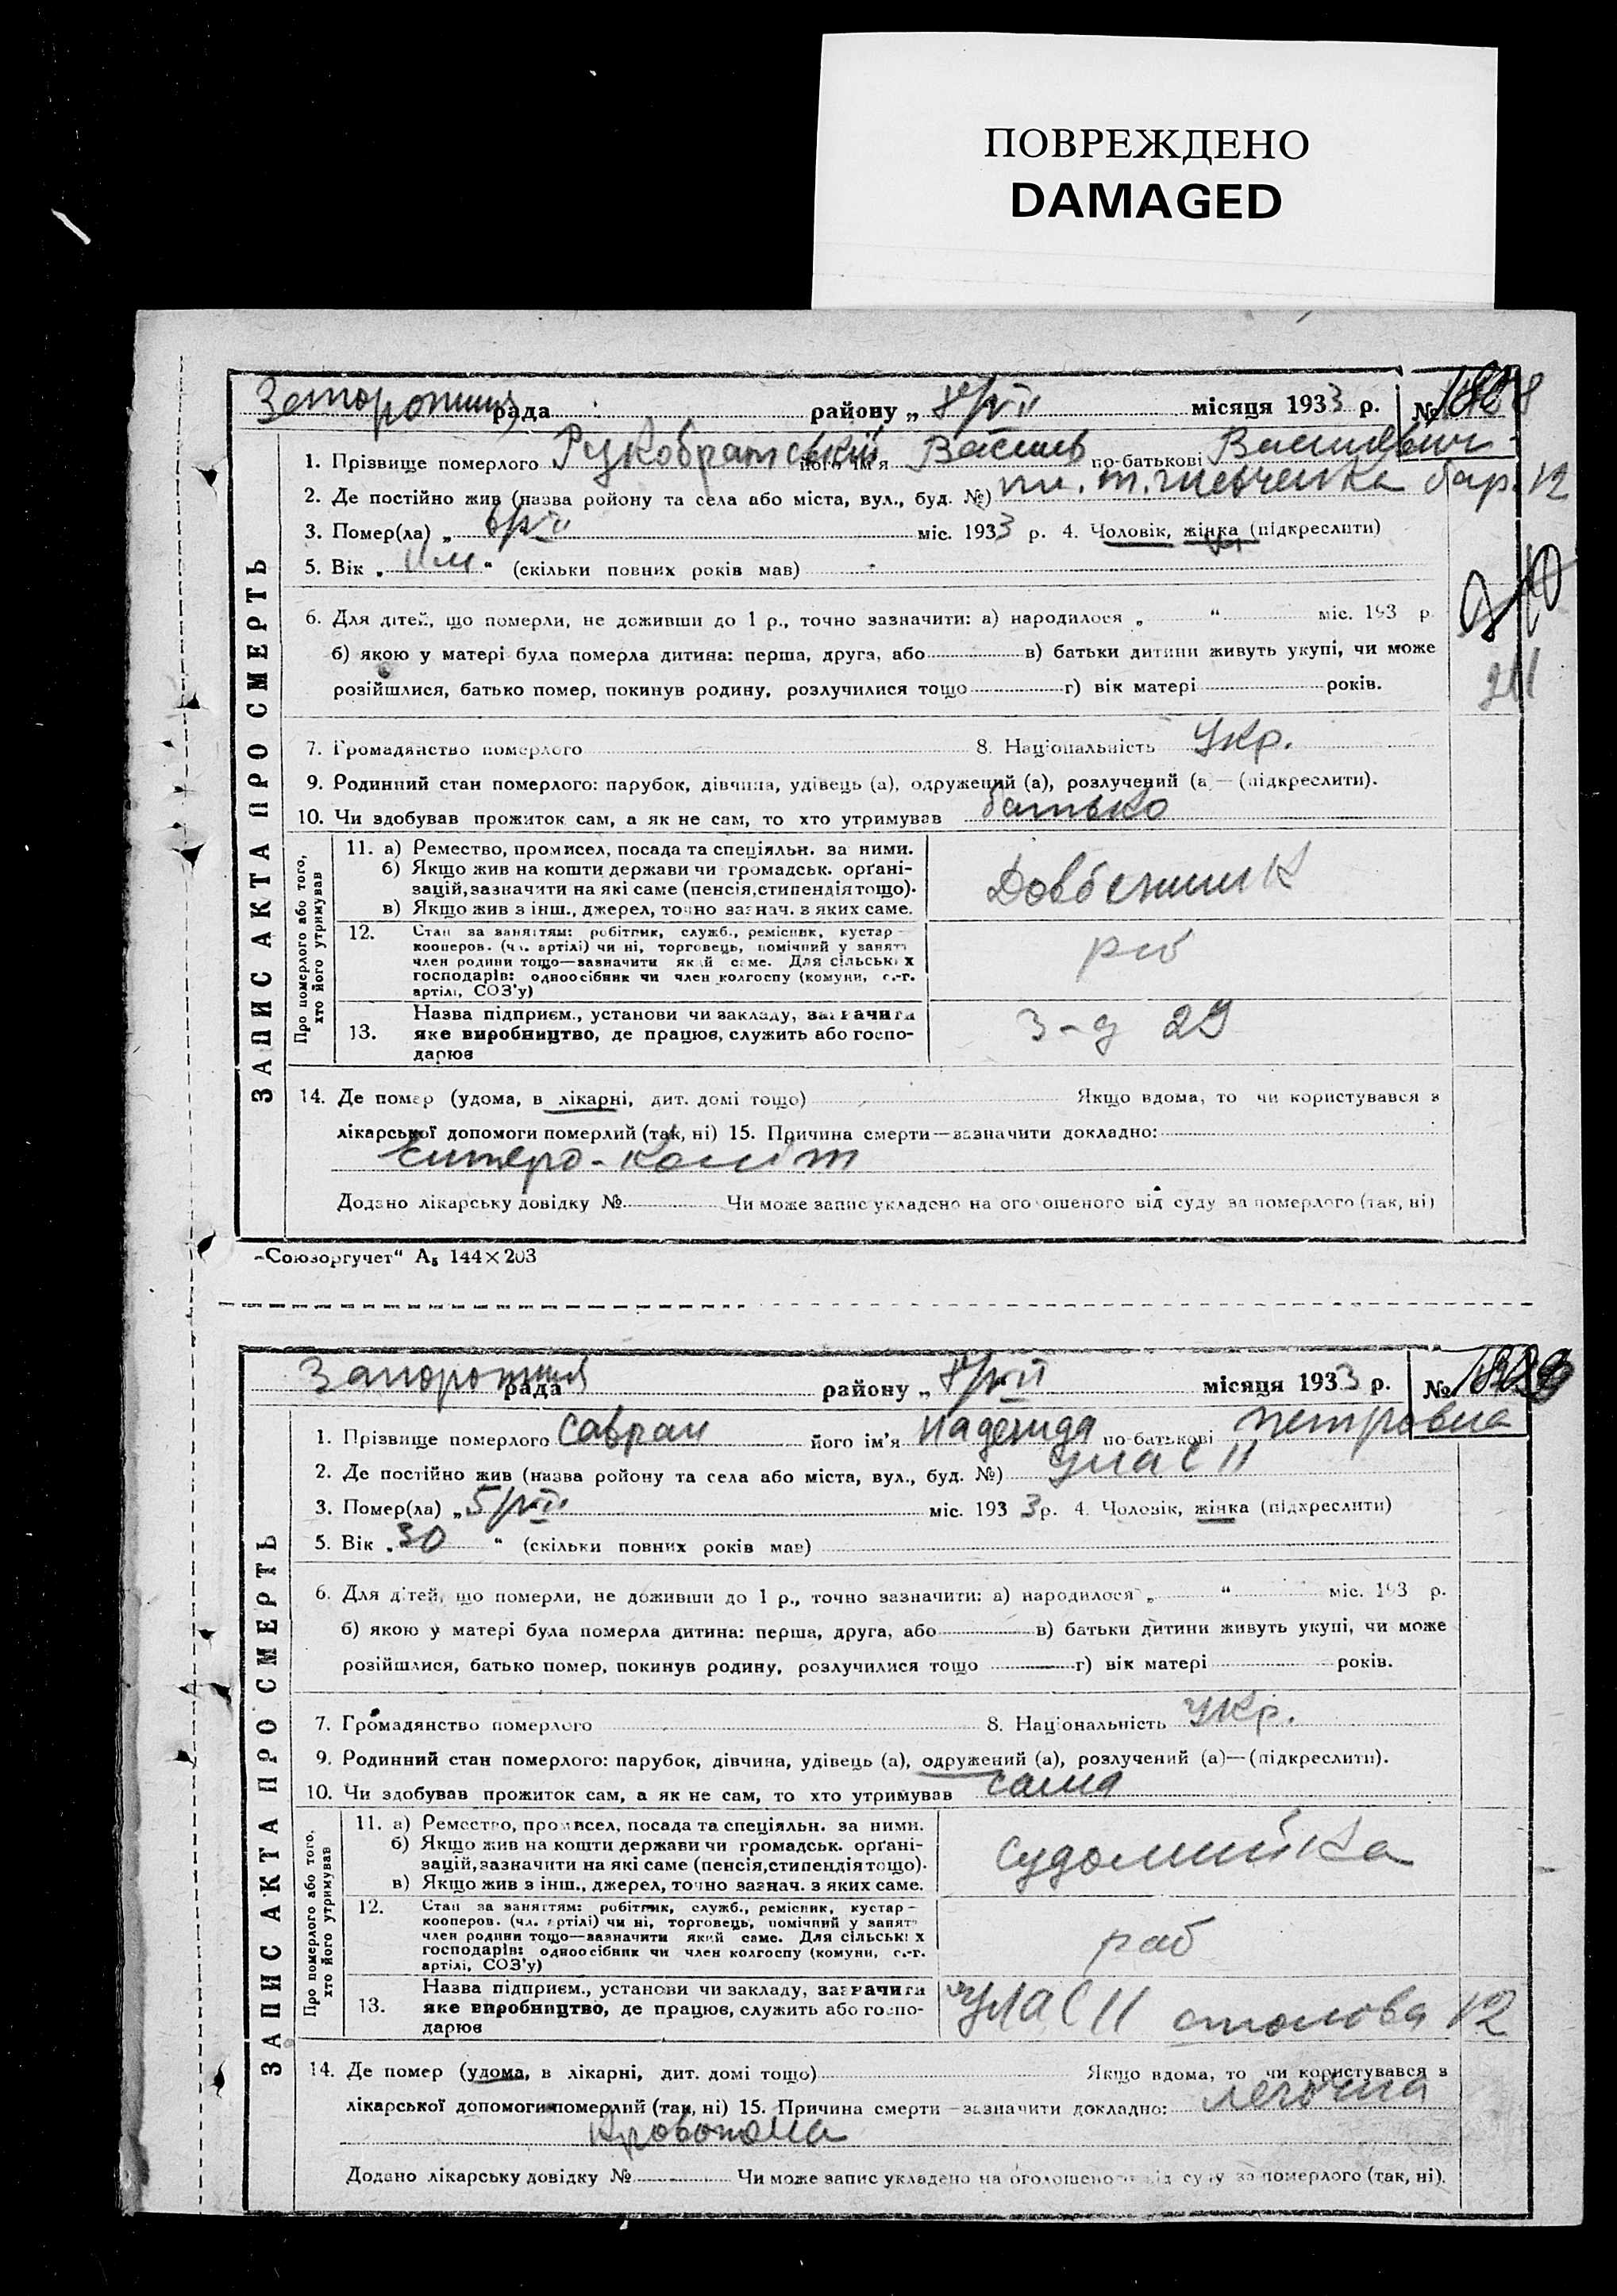 ПОВРЕЖДЕНО
DAMAGED
Запоріжжя рада району „ 8/VII місяця 1933 р. №
1. Прізвище померлого його ім'я Василь по-батькові Васильович
2. Де постійно жив (назва ройону та села або міста, вул., буд. №) пл. т. Шевченка бар. 12
3. Помер(ла) „ 6/VII міс. 1933 р. 4. Чоловік, жінка (підкреслити)
5. Вік „ 11 м “ (скільки повних років мав)
6. Для дітей, що померли, не доживши до 1 р., точно зазначити: а) народилося „ “ міс. 193 р.
б) якою у матері була померла дитина: перша, друга, або в) батьки дитини живуть укупі, чи може
розійшлися, батько помер, покинув родину, розлучилися тощо г) вік матері років.
211
7. Громадянство померлого 8. Національність Укр.
9. Родинний стан померлого: парубок, дівчина, удівець (а), одружений (а), розлучений (а — (підкреслити).
10. Чи здобував прожиток сам, а як не сам, то хто утримував батько
ЗАПИС АКТА ПРО СМЕРТЬ
Про померлого або того, хто його утримував
11. а) Ремество, промисел, посада та спеціяльн. за ними.
б) Якщо жив на кошти держави чи громадськ. орґані-
зацій, зазначити на які саме (пенсія, стипендія тощо).
в) Якщо жив з інш., джерел, точно зазнач. з яких саме.
Довбешник
12. Стан за заняттям: робітник, служб., ремісник, кустар—
кооперов. (чл. артілі) чи ні, торговець, помічний у занятт
член родини тощо—зазначити який саме. Для сільських
господарів: одноосібник чи член колгоспу (комуни, с.-г.
артілі, СОЗ'у)
роб
13. Назва підприєм., установи чи закладу, зазначити
яке виробництво, де працюв, служить або госпо-
дарюв
З-д 29
14. Де помер (удома, в лікарні, дит. домі тощо) Якщо вдома, то чи користувався з
лікарської допомоги померлий (так, ні) 15. Причина смерти—зазначити докладно:
Ентеро-коліт
Додано лікарську довідку № Чи може запис укладено на оголошеного від суду за померлого (так, ні)
„Союзоргучет“ А₅ 144×203
Запоріжжя рада району „ 8/VII місяця 1933 р. №
1. Прізвище померлого Савран його ім'я Надежда по-батькові Петровна
2. Де постійно жив (назва ройону та села або міста, вул., буд. №)
3. Помер(ла) „ 5/VII міс. 1933 р. 4. Чоловік, жінка (підкреслити)
5. Вік „ 30 “ (скільки повних років мав)
6. Для дітей, що померли, не доживши до 1 р., точно зазначити: а) народилося „ “ міс. 193 р.
б) якою у матері була померла дитина: перша, друга, або в) батьки дитини живуть укупі, чи може
розійшлися, батько помер, покинув родину, розлучилися тощо г) вік матері років.
7. Громадянство померлого 8. Національність Укр.
9. Родинний стан померлого: парубок, дівчина, удівець (а), одружений (а), розлучений (а)—(підкреслити).
10. Чи здобував прожиток сам, а як не сам, то хто утримував сама
ЗАПИС АКТА ПРО СМЕРТЬ
Про померлого або того, хто його утримував
11. а) Ремество, промисел, посада та спеціяльн. за ними.
б) Якщо жив на кошти держави чи громадськ. орґані-
зацій, зазначити на які саме (пенсія, стипендія тощо).
в) Якщо жив з інш., джерел, точно зазнач. з яких саме.
судомийка
12. Стан за заняттям: робітник, служб., ремісник, кустар—
кооперов. (чл. артілі) чи ні, торговець, помічний у занятт
член родини тощо—зазначити який саме. Для сільських
господарів: одноосібник чи член колгоспу (комуни, с.-г.
артілі, СОЗ'у)
раб
13. Назва підприєм., установи чи закладу, зазначити
яке виробництво, де працюв, служить або госпо-
дарюв
столова 12
14. Де помер (удома, в лікарні, дит. домі тощо) Якщо вдома, то чи користувався з
лікарської допомоги померлий (так, ні) 15. Причина смерти—зазначити докладно: легочна
Додано лікарську довідку № Чи може запис укладено на оголошеного від суду за померлого (так, ні).